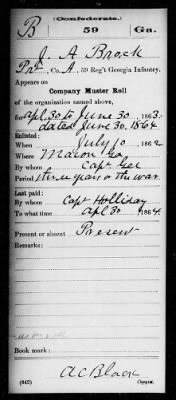 (Confederate.)
B 59 Ga.
J. A. Brock
Pvt, Co. A, 59 Reg't Georgia Infantry.
Appears on
Company Muster Roll
of the organization named above,
for Apl 30 to June 30, 1863.
dated June 30, 1864
Enlisted:
When July 10, 1862
Where Macon Ga
By whom Capt Gee
Period three years or the war
Last paid:
By whom Capt Holliday
To what time Apl 30, 1864.
Present or absent Present
Remarks:
Book mark:
A C Black
(642) Copyist.